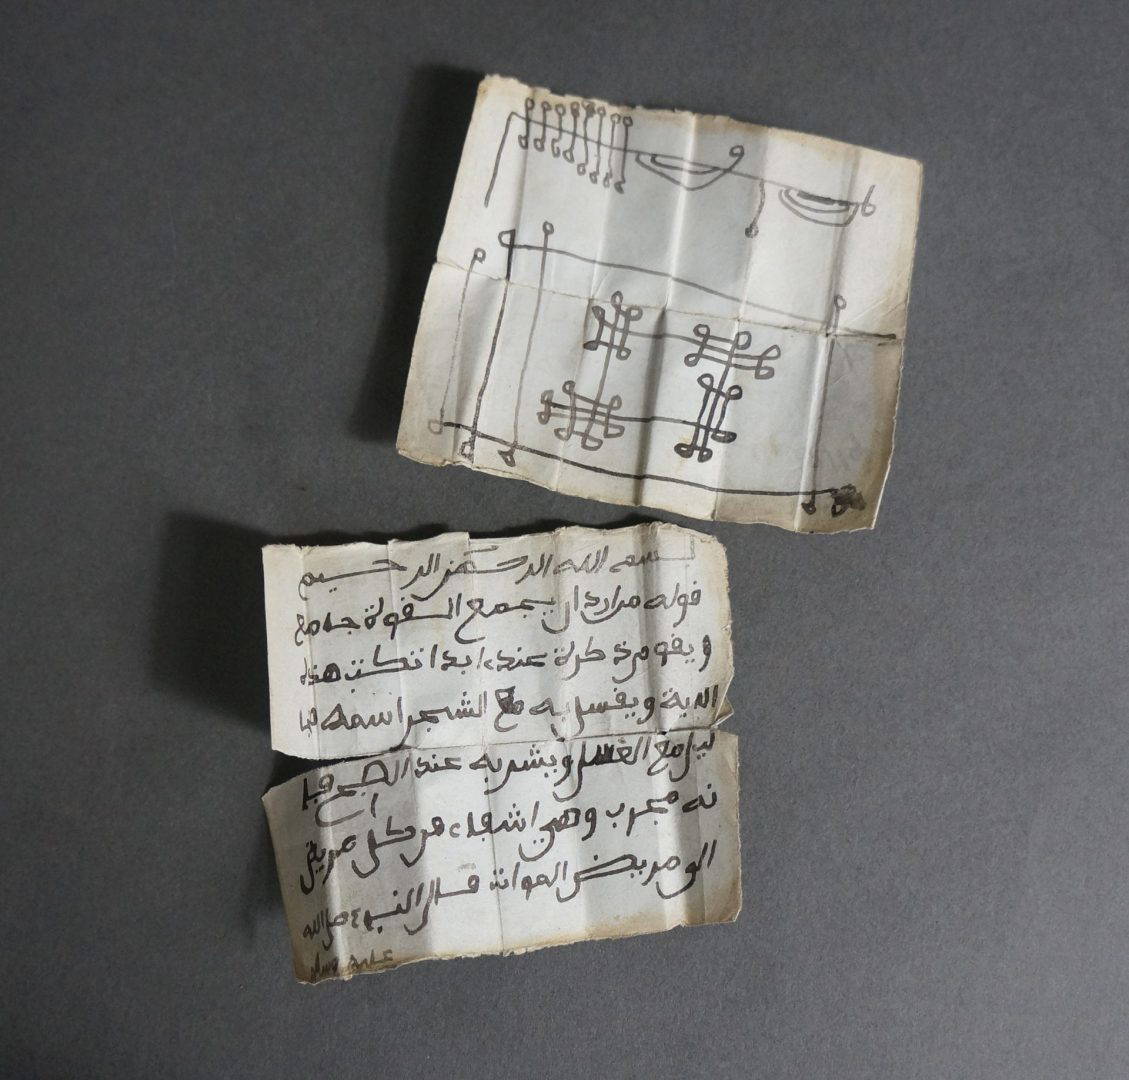 بسم الله الرحمن الرحيم
قوله من اراد ان يجمع القوة جامع
و يقو مرة عنده ابدا تكتب هذه
الاية و يغسل به مع الشجر اسمه
مع الغسل و يشربه عند الصبح فا
نه مجرب و هي اشفاء من كل مريض
الو مريض الموات قال النبيء صلى الله
عليه وسلم